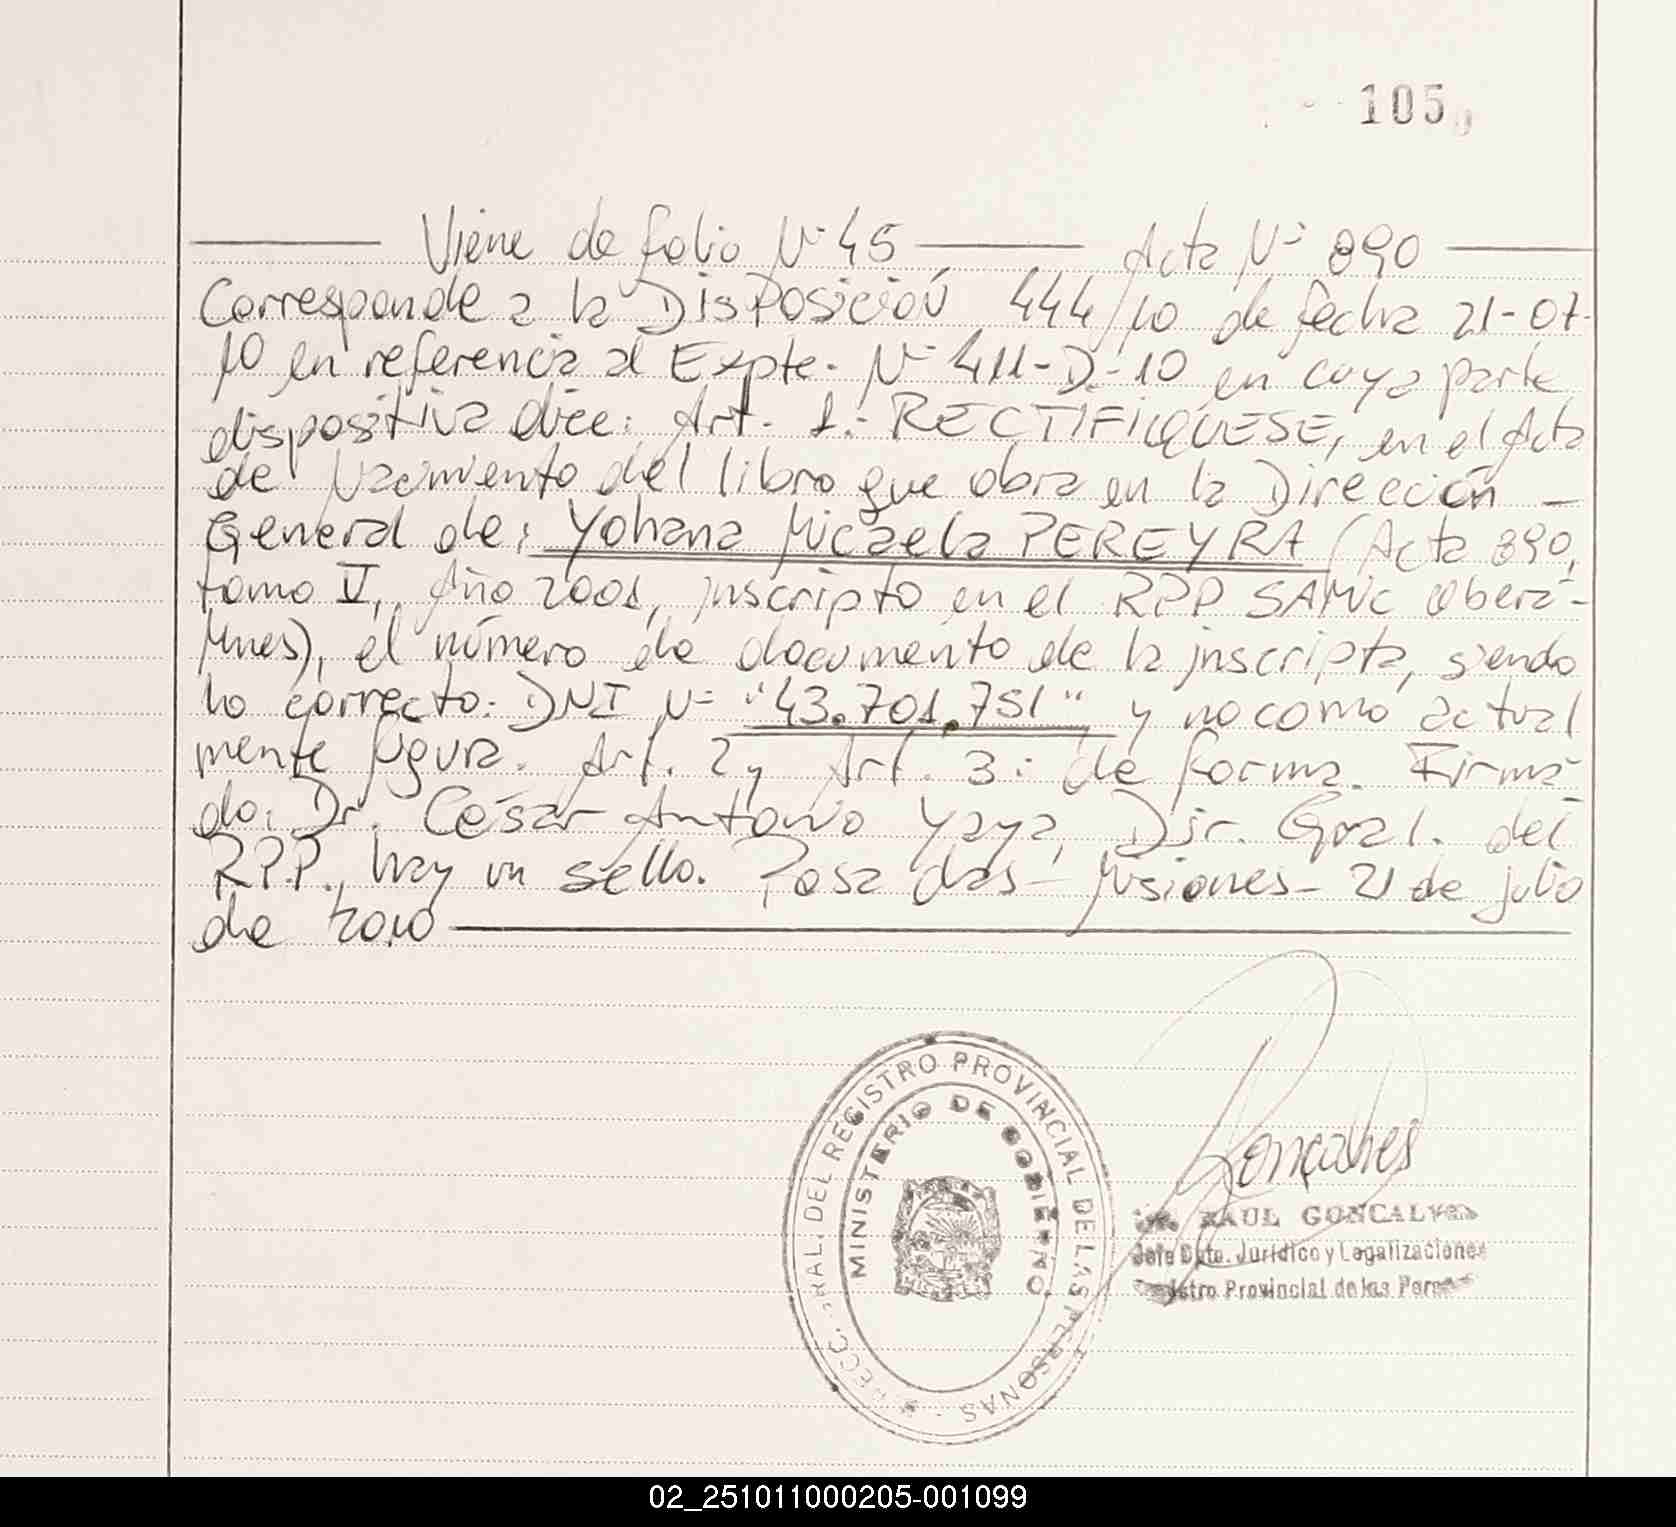 105
Viene de folio Nº 45 Acta Nº 890
Corresponde a la Disposición 444/10 de fecha 21-07-
10 en referencia al Expte. Nº 411-D-10 en cuya parte
dispositiva dice: Art. 1: RECTIFIQUESE, en el Acta
de Nacimiento del libro que obra en la Dirección -
General de: Yohana Micaela PEREYRA (Acta 890,
tomo V, Año 2001, inscripto en el RPP SAMIC Oberá-
Mnes), el número de documento de la inscripta, siendo
lo correcto: DNI Nº "43.701.751" y no como actual
mente figura. Art. 2 y Art. 3: de forma. Firma-
do: Dr. César Antonio Yaya, Dir. Gral. del
R.P.P., hay un sello. Posadas - Misiones - 21 de julio
de 2010
RAL. DEL REGISTRO PROVINCIAL DE LAS PERSONAS
MINISTERIO DE GOBIERNO
Goncalves
RAUL GONCALVES
Jefe Dpto. Jurídico y Legalizaciones
Provincial de las
02_251011000205-001099